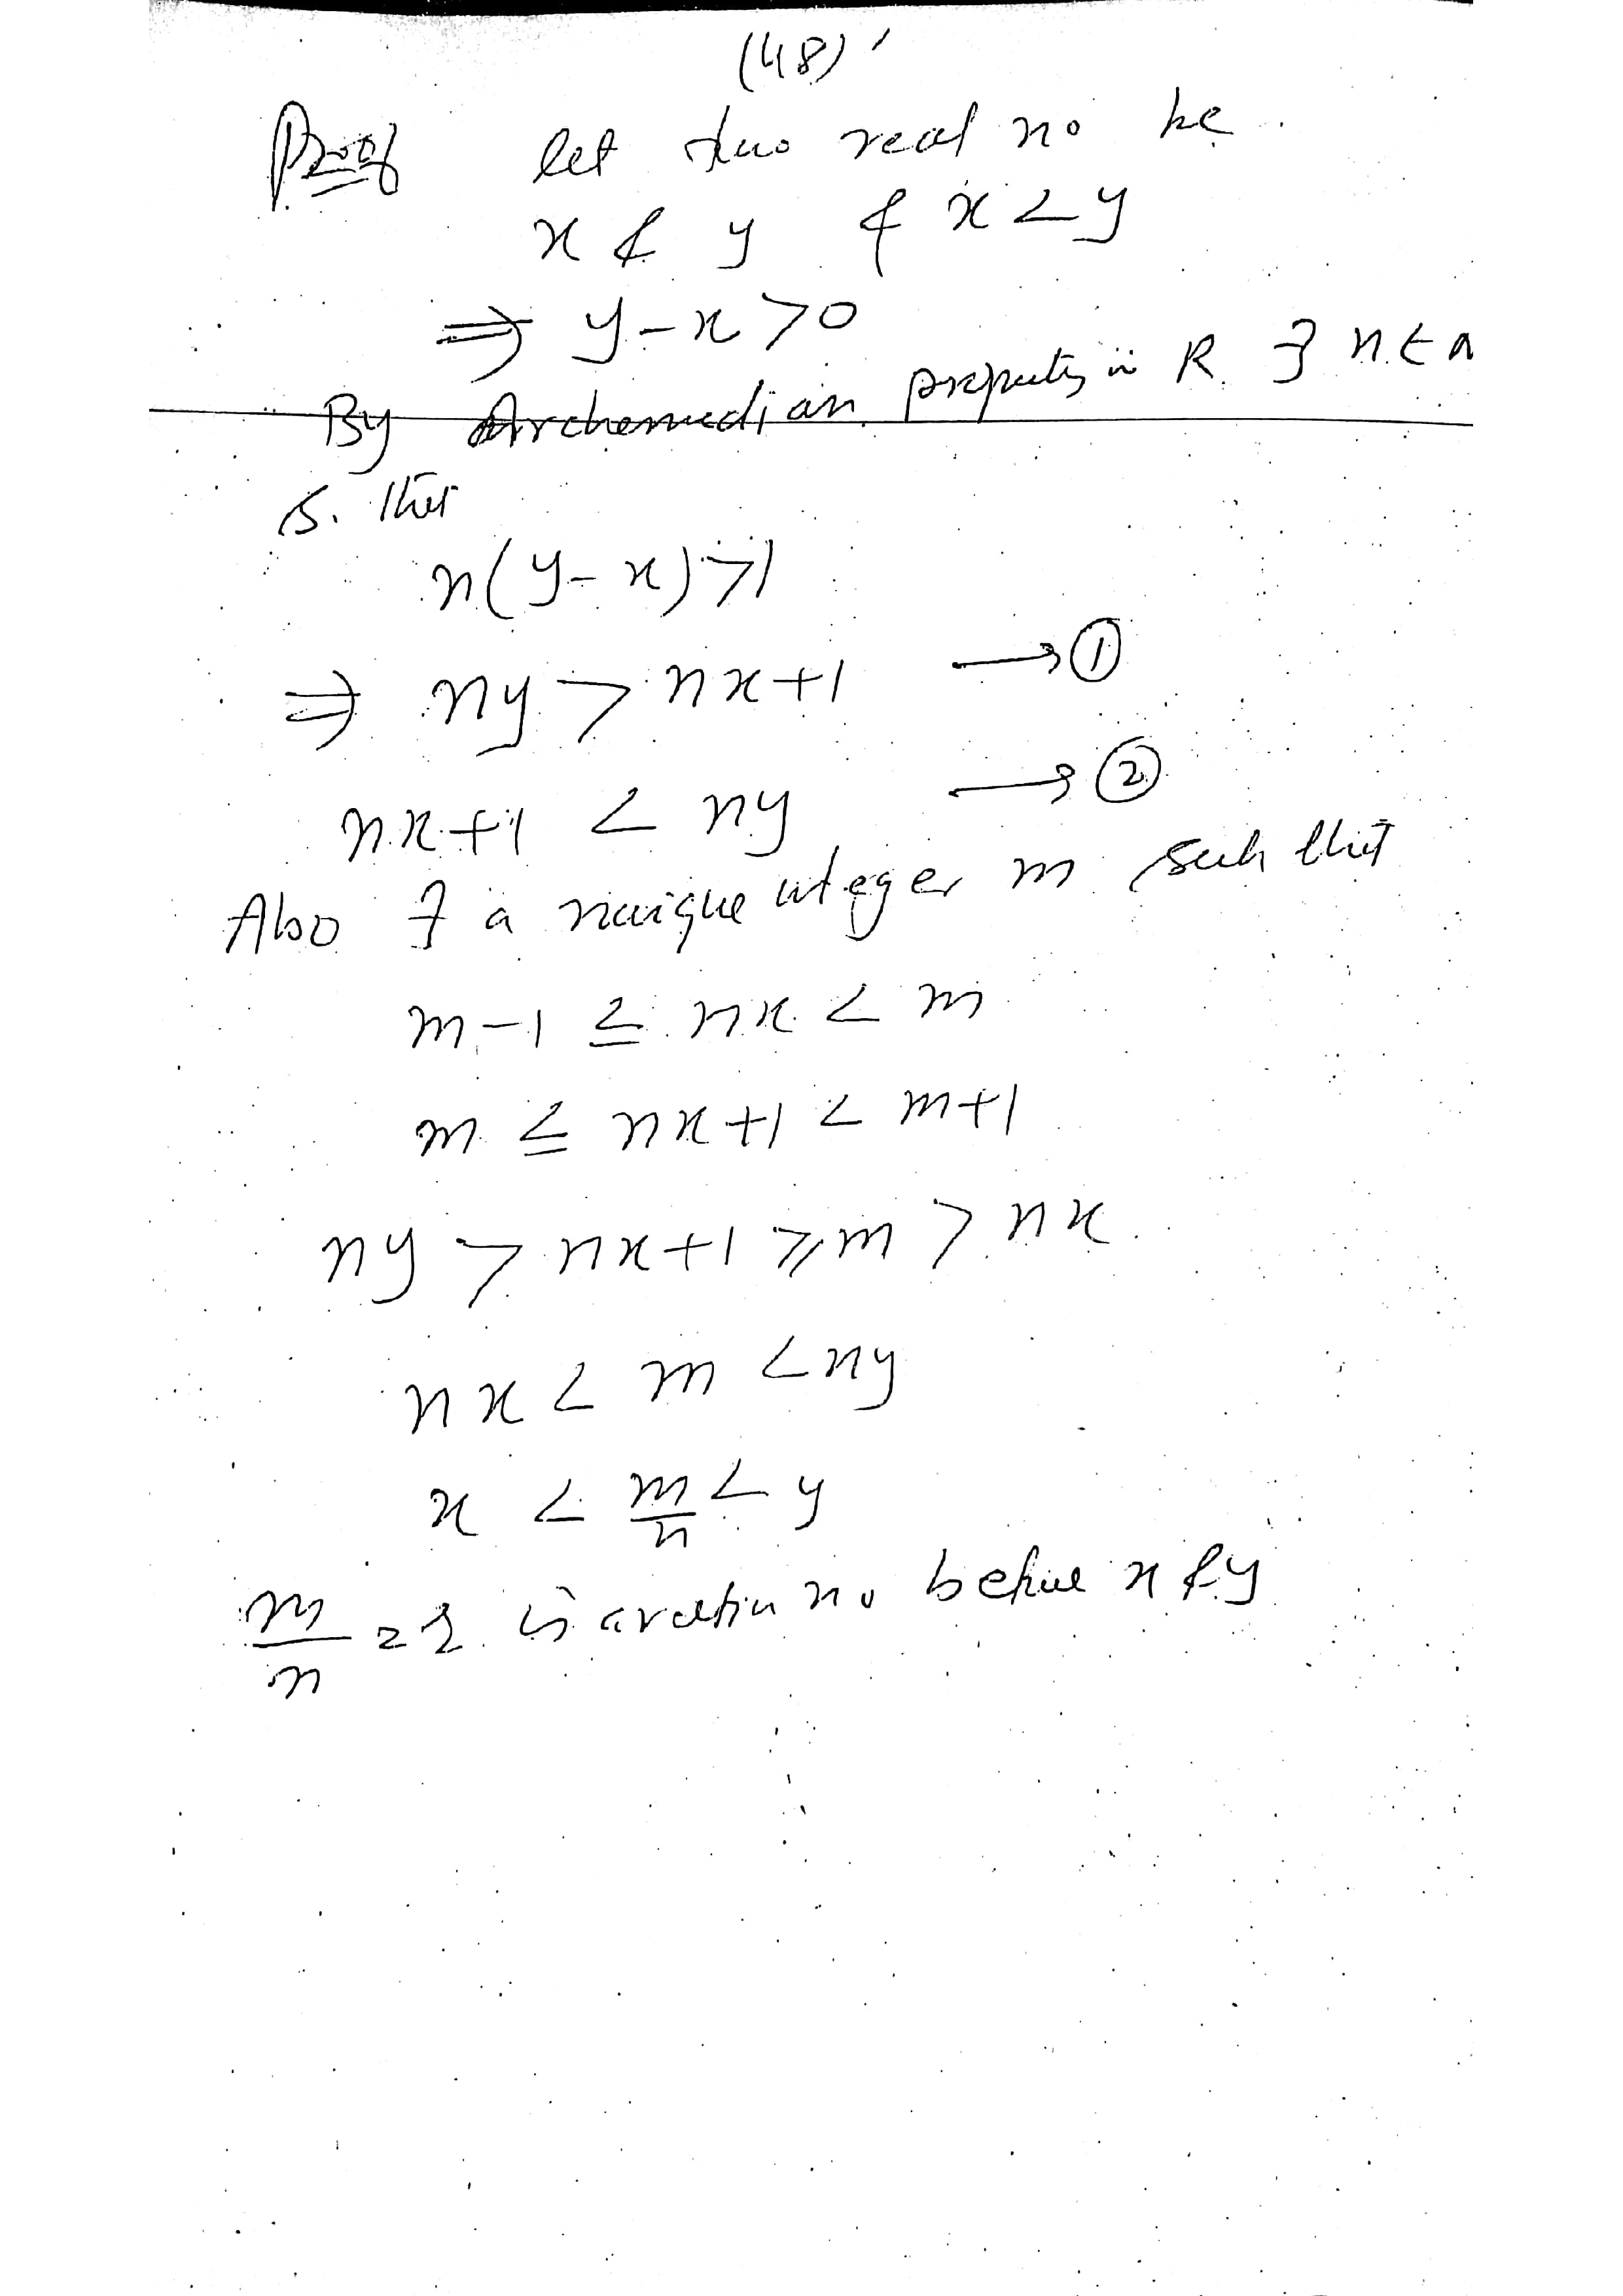 (48)
Proof let two real no be
x & y & x < y
⇒ y - x > 0
By Archemedian property in R ∃ n ∈ N
s. that
n(y - x) > 1
⇒ ny > nx + 1 → ①
nx + 1 < ny → ②
Also ∃ a unique integer m such that
m - 1 ≤ nx < m
m ≤ nx + 1 < m + 1
ny > nx + 1 ≥ m > nx
nx < m < ny
x < m/n < y
m/n = is a no x & y